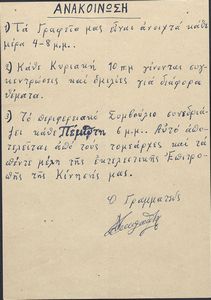 ΑΝΑΚΟΙΝΩΣΗ
1) Τά Γραφεῖα μας εἶναι ἀνοιχτά κάθε
μέρα 4-8 μ.μ..
2) Κάθε Κυριακή 10 πμ γίνονται συγ-
κεντρώσεις καί ὁμιλίες γιά διάφορα
θέματα.
3) Τό περιφερειακό Συμβούλιο συνεδριά-
ζει κάθε Πέμπτη 6 μ.μ.. Αὐτό ἀπο-
τελεῖται ἀπό τούς τομεάρχες καί τά
πέντε μέλη τῆς ἐκτελεστικῆς Ἐπιτρο-
πῆς τῆς Κίνησής μας.
Ὁ Γραμματεύς